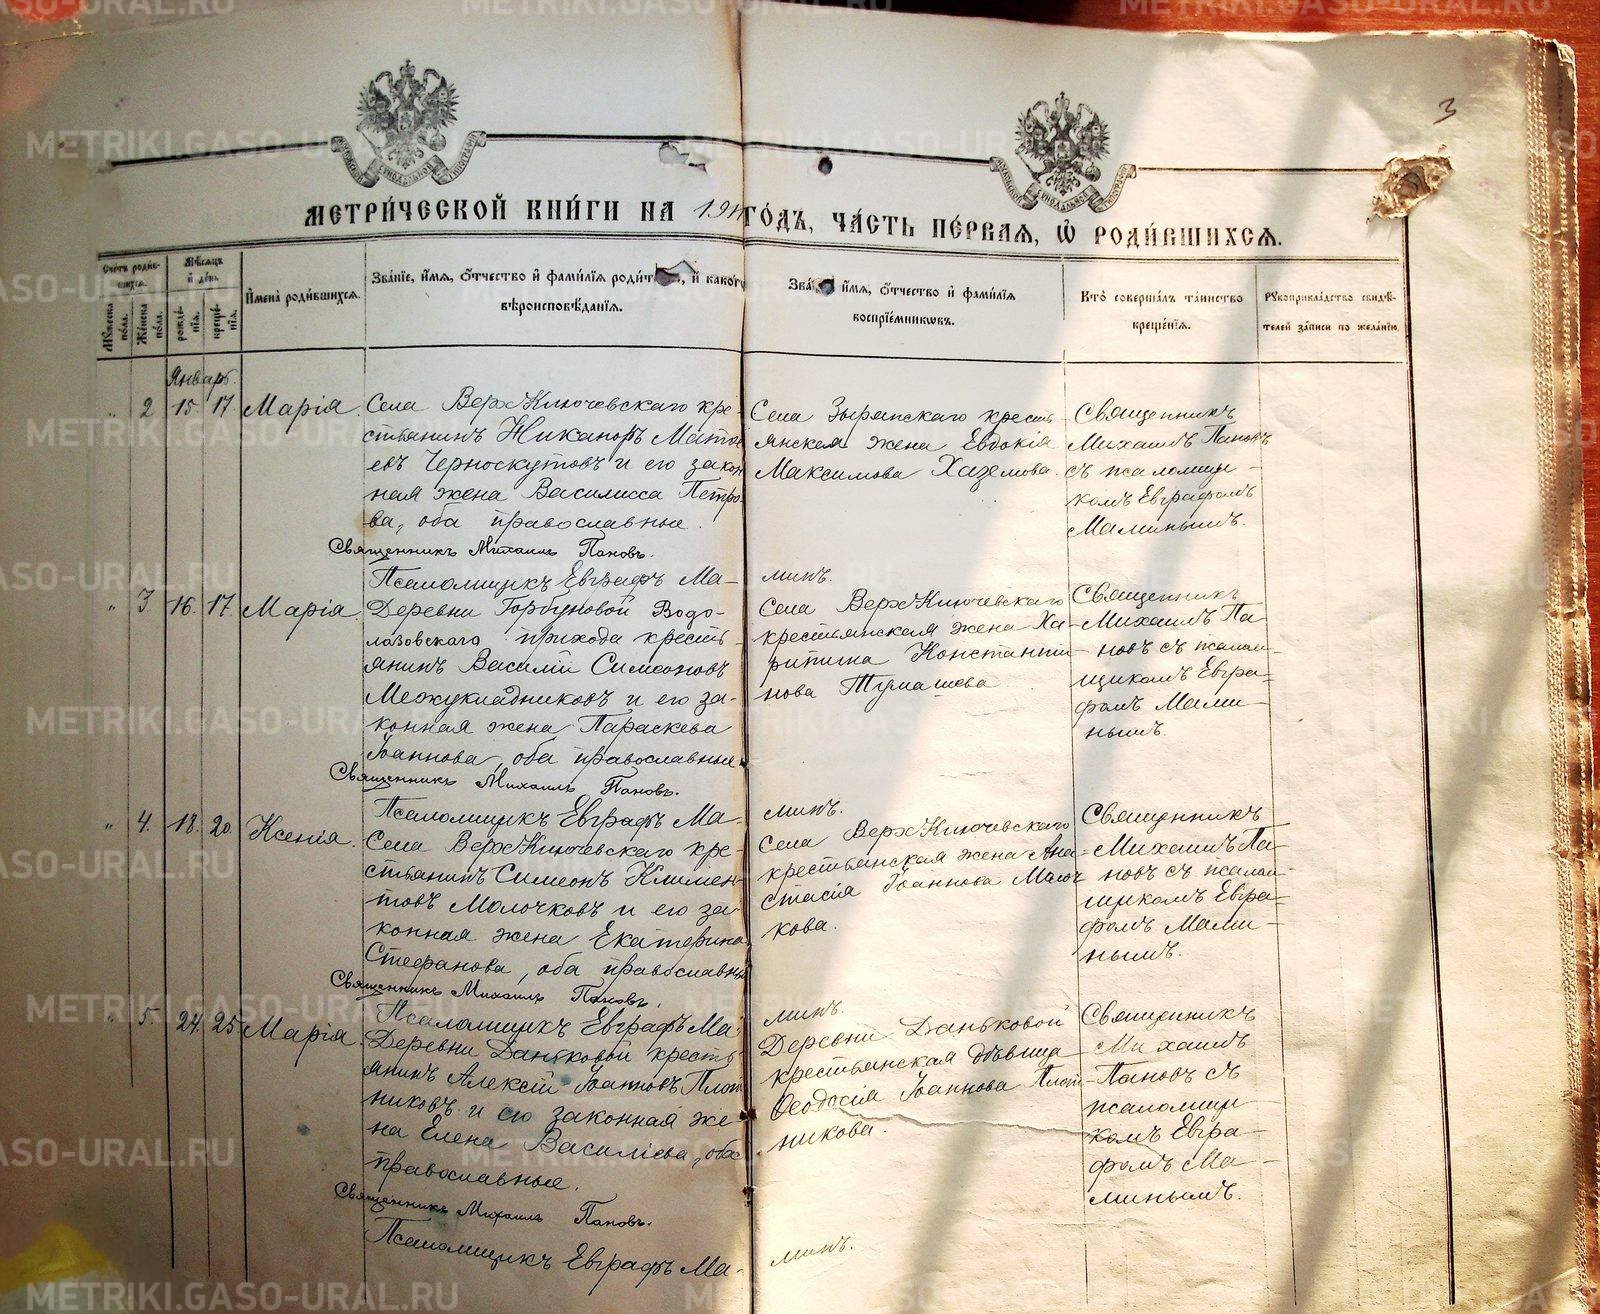 3
МЕТРИ́ЧЕСКОЙ КНИ́ГИ НА 191 ГО́ДЪ, ЧА́СТЬ ПЕ́РВАЯ, Ѡ҆ РОДИ́ВШИХСѦ.
Сче́тъ роди́вшихсѧ.
Мꙋ́жеска по́ла.
Же́нска по́ла.
Мѣ́сѧцъ и҆ де́нь.
рожде́нїѧ.
креще́нїѧ.
И҆мена̀ роди́вшихсѧ.
Зва́нїе, и҆́мѧ, ѻ҆́тчество и҆ фами́лїѧ роди́т и҆ како́гѡ
вѣроисповѣ́данїѧ.
Зва́ и҆́мѧ, ѻ҆́тчество и҆ фами́лїѧ
воспрїе́мникѡвъ.
Кто̀ соверша́лъ та́инство
креще́нїѧ.
Рꙋкоприкла́дство свидѣ́-
телей за́писи по жела́нїю.
Январь.
" 2 15 17 Марія.
Села Верх-Ключевскаго кре-
стьянинъ Никаноръ Матѳ
евъ Черноскутовъ и его закон
ная жена Василисса Петро-
ва, оба православные.
Священникъ Михаилъ Пановъ.
Псаломщикъ Евграфъ Ма-
минъ.
Села Зырянскаго кресть
янская жена Евдокія
Максимова Хаземова.
Священникъ
Михаилъ Пановъ
съ псаломщи-
комъ Евграфомъ
Маминымъ.
" 3 16. 17. Марія.
Деревни Горбуновой Водо-
лазовскаго прихода кресть-
янинъ Василій Симеоновъ
Межукладниковъ и его за-
конная жена Параскева
Іоаннова, оба православные.
Священникъ Михаилъ Пановъ.
Псаломщикъ Евграфъ Ма-
минъ.
Села Верх-Ключевскаго
крестьянская жена Ха-
ритина Константи-
нова Тумашева
Священникъ
Михаилъ Па-
новъ съ псалом-
щикомъ Евгра-
фомъ Мами-
нымъ.
" 4. 18. 20. Ксенія.
Села Верх-Ключевскаго кре-
стьянинъ Симеонъ Климен-
товъ Молочковъ и его за-
конная жена Екатерина
Стефанова, оба православны
Священникъ Михаилъ Пановъ.
Псаломщикъ Евграфъ Ма-
минъ.
Села Верх-Ключевскаго
крестьянская жена Ана-
стасія Іоаннова Молоч-
кова.
Священникъ
Михаилъ Па-
новъ съ псалом-
щикомъ Евгра-
фомъ Мами-
нымъ.
" 5. 24. 25 Марія.
Деревни Даньковой кресть-
янинъ Алексій Іоанновъ Плот
никовъ и его законная же-
на Елена Василіева, оба
православные.
Священникъ Михаилъ Пановъ.
Псаломщикъ Евграфъ Ма-
минъ.
Деревни Даньковой
крестьянская дѣвица
Ѳеодосія Іоаннова Плот-
никова.
Священникъ
Михаилъ
Пановъ съ
псаломщи
комъ Евгра-
фомъ Ма-
минымъ.
METRIKI.GASO-URAL.RU